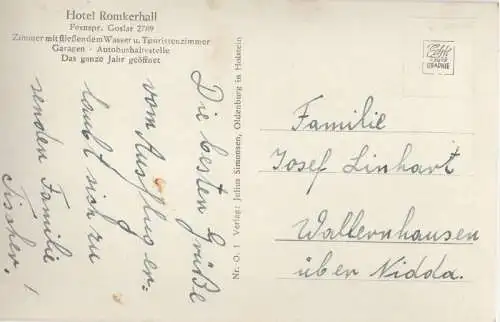 Hotel Romkerhall
Fernspr. Goslar 2789
Zimmer mit fließendem Wasser u. Touristenzimmer
Garagen - Autobushaltestelle
Das ganze Jahr geöffnet
Die besten Grüße
vom Ausflug er-
laubt sich zu
senden Familie
Tischer.!
Nr. O. 1 Verlag: Julius Simonsen, Oldenburg in Holstein
Echte
GRAPHIE
Familie
Josef Linhart
Wallernhausen
über Nidda.